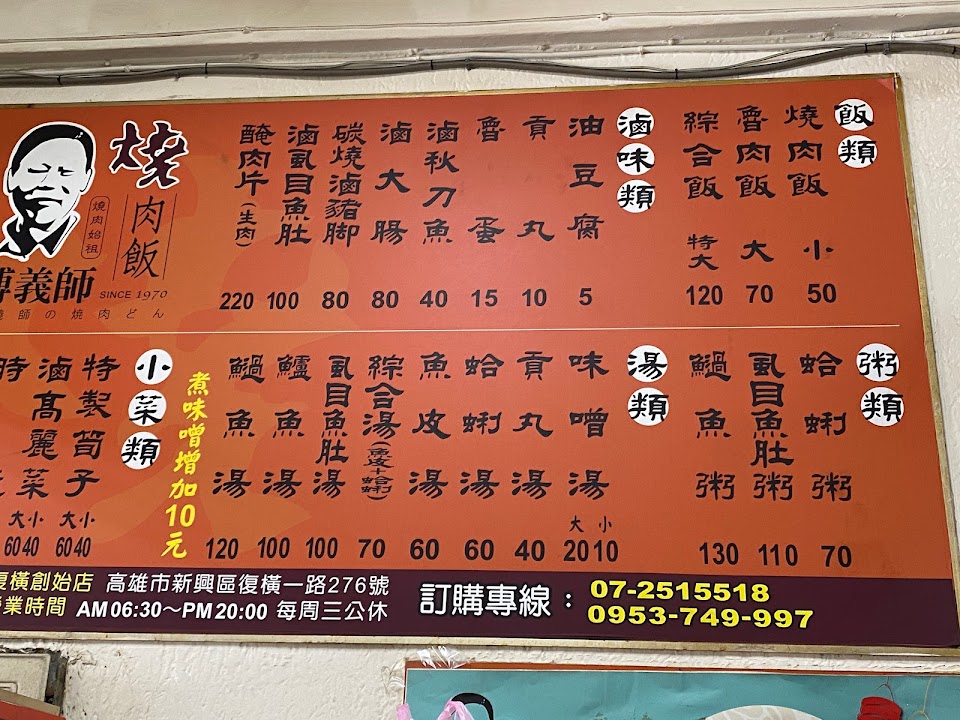 飯類
燒肉飯 小 50
魯肉飯 大 70
綜合飯 特大 120
滷味類
油豆腐 5
貢丸 10
魯蛋 15
滷秋刀魚 40
滷大腸 80
碳燒滷豬脚 80
滷虱目魚肚 100
醃肉片(生肉) 220
燒
肉飯
燒肉始祖
義師
SINCE 1970
師の燒肉どん
粥類
蛤蜊粥 70
虱目魚肚粥 110
鍋魚粥 130
湯類
味噌湯 大小 20 10
貢丸湯 40
蛤蜊湯 60
魚皮湯 60
綜合湯(魚皮+蛤蜊) 70
虱目魚肚湯 100
鱸魚湯 100
鍋魚湯 120
煮味噌增加10元
小菜類
特製筍子 大小 60 40
滷高麗菜 大小 60 40
時
復橫創始店 高雄市新興區復橫一路276號
營業時間 AM 06:30~PM 20:00 每周三公休
訂購專線:
07-2515518
0953-749-997